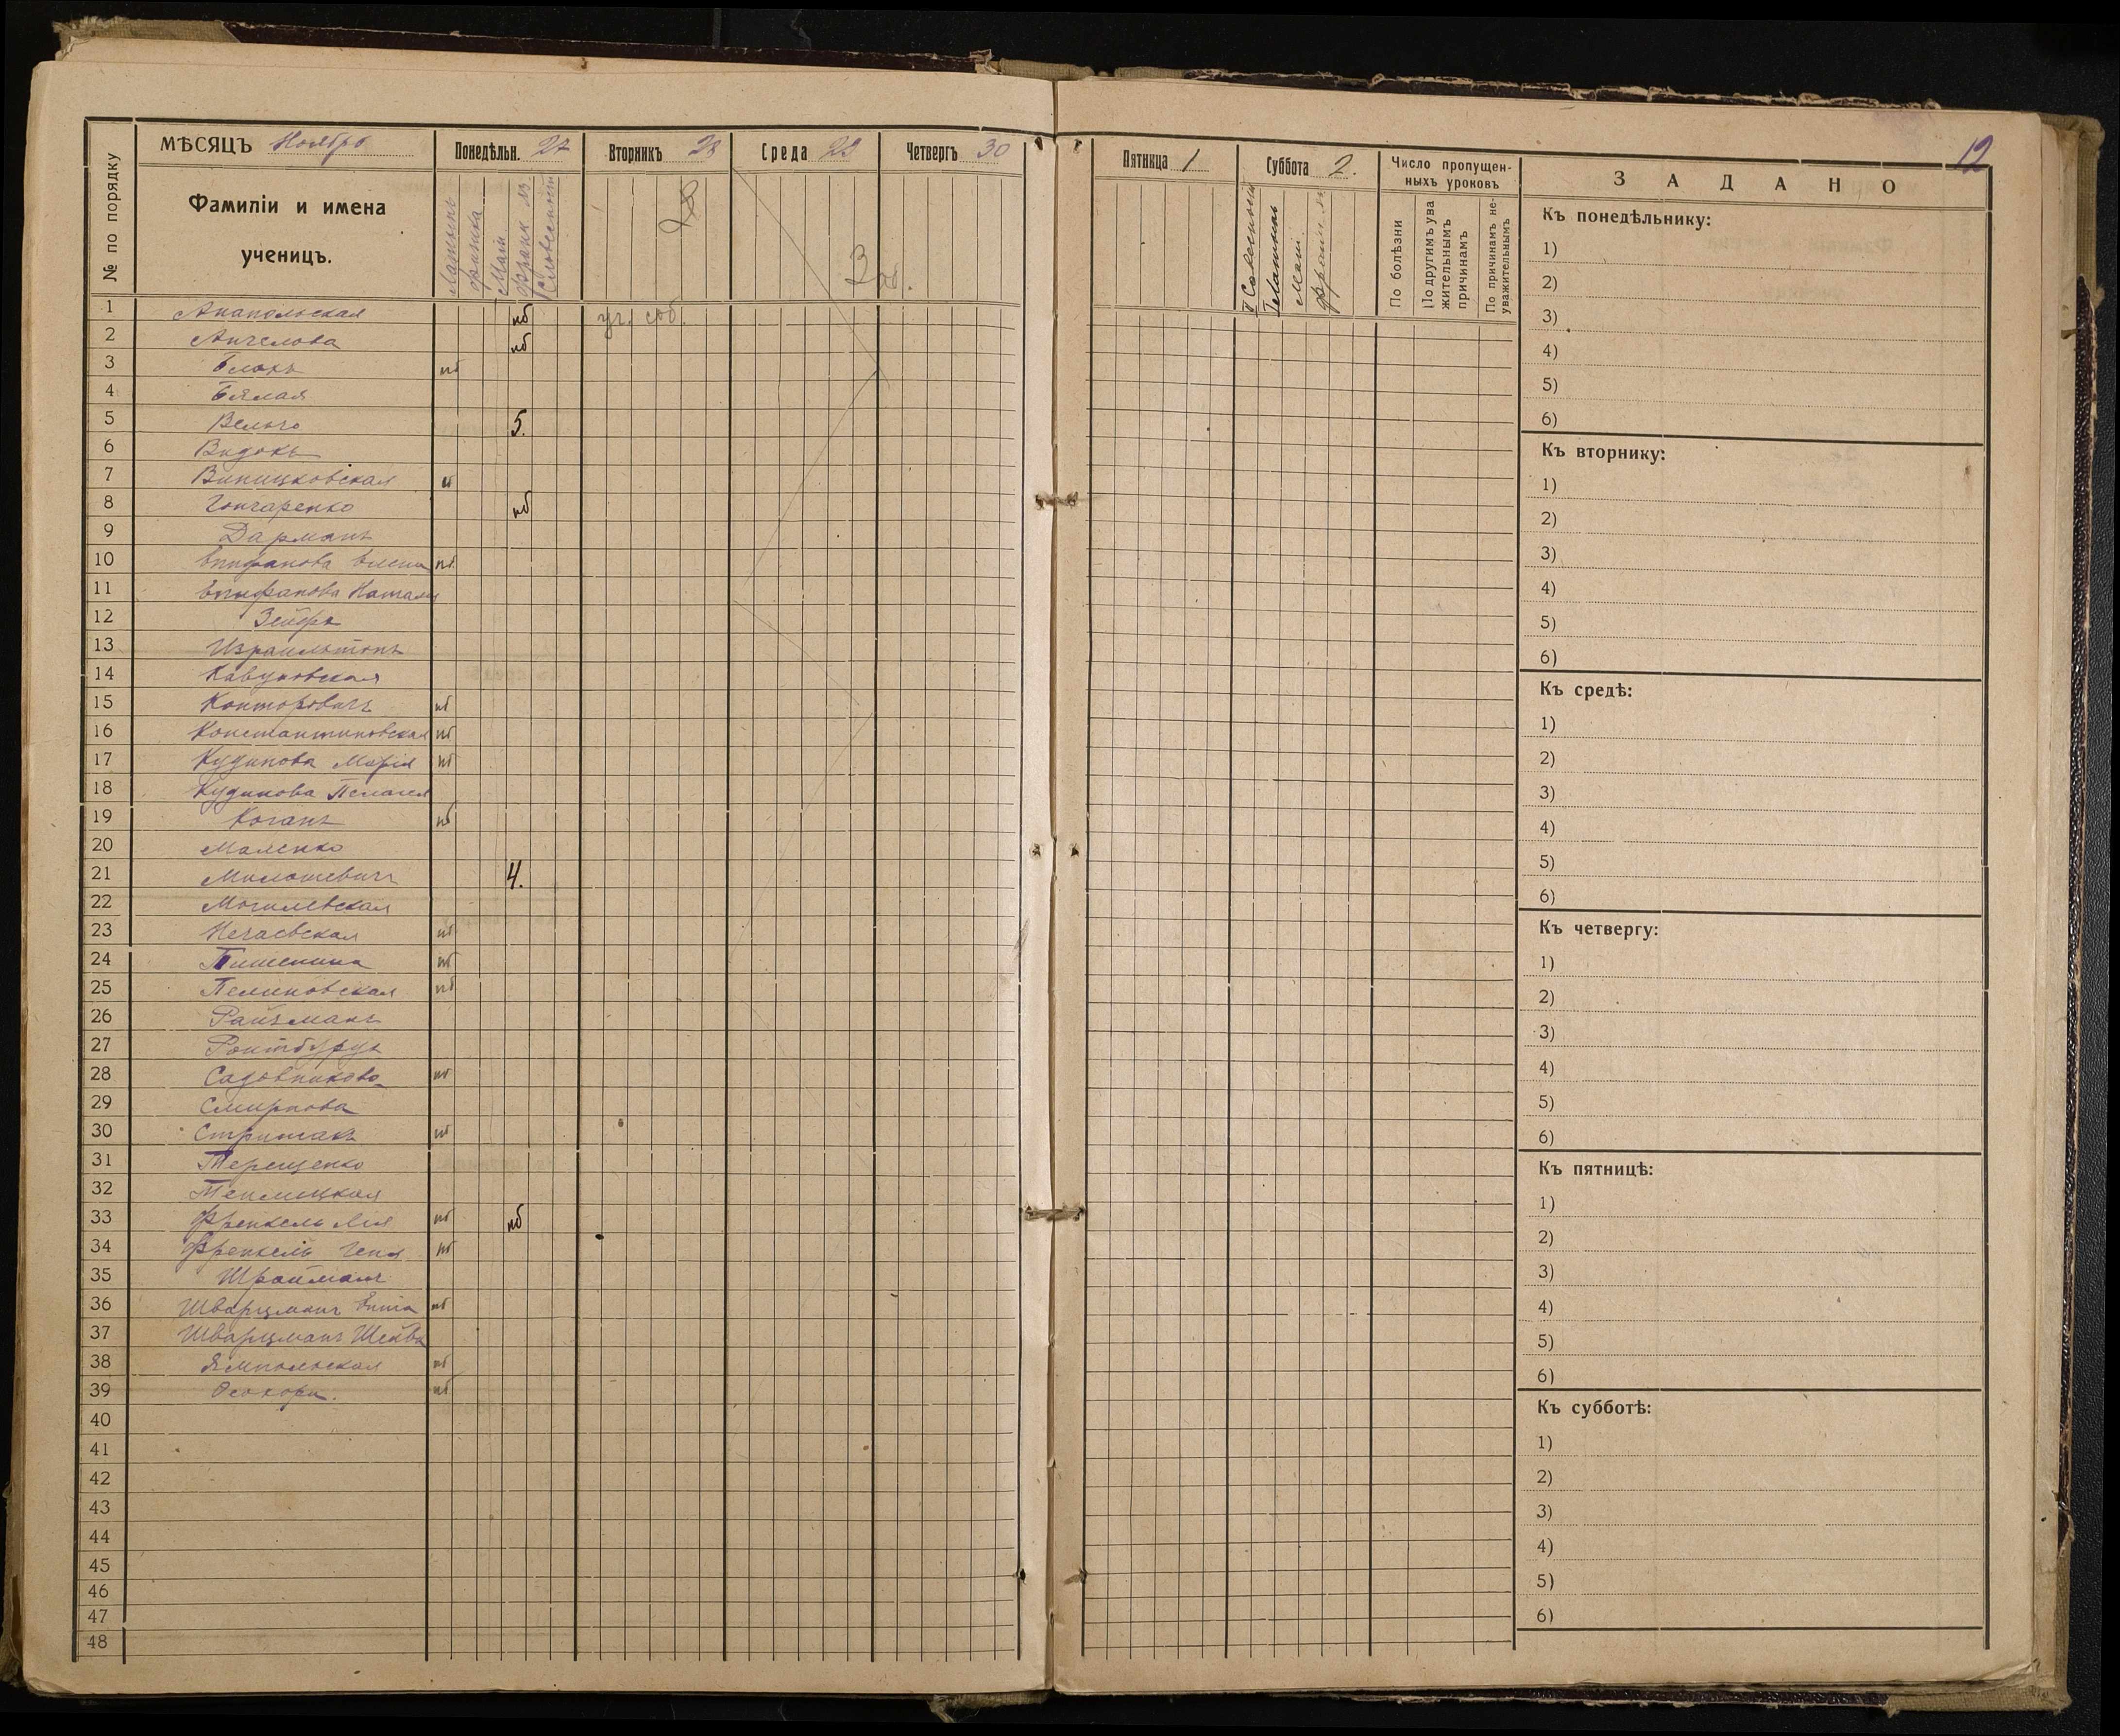 12
№ по порядку
МѢСЯЦЪ Ноябрь
Фамиліи и имена
ученицъ.
Понедѣльн. 27
Латынь
физика
Мат.
Франц. яз.
Словесность
Вторникъ 28
Среда 29
Четвергъ 30
Пятница 1
Суббота 2.
Латынь
Мат.
Франц. яз.
Число пропущен-
ныхъ уроковъ
По болѣзни
По другимъ ува
жительнымъ
причинамъ
По причинамъ не-
уважительнымъ
ЗАДАНО
1 Анапольская нб
2 Ангелова нб
3 Блокъ нб
4 Бѣлая
5 Вельго 5.
6 Видокъ
7 Виницковская
8 Гончаренко нб
9 Дарманъ
10 Епифанова Елена нб
11 Епифанова Наталія
12 Зейфъ
13 Израильтонъ
14 Кавуновская
15 Конторовичъ нб
16 Константиновская нб
17 Кудинова Марія нб
18 Кудинова Пелагея
19 Коганъ нб
20 Маленко
21 Милошевичъ 4.
22 Могилевская
23 Нечаевская нб
24 Пишенина нб
25 Пелиновская нб
26 Райзманъ
27 Ройтбурдъ
28 Садовникова нб
29 Смирнова
30 Стрижакъ нб
31 Терещенко
32 Теплицкая
33 Френкель Лея нб нб
34 Френкель Геня нб
35 Шройманъ
36 Шварцманъ Ента нб
37 Шварцманъ Шейва
38 Ямпольская нб
39 Осокора. нб
40
41
42
43
44
45
46
47
48
Къ понедѣльнику:
1)
2)
3)
4)
5)
6)
Къ вторнику:
1)
2)
3)
4)
5)
6)
Къ средѣ:
1)
2)
3)
4)
5)
6)
Къ четвергу:
1)
2)
3)
4)
5)
6)
Къ пятницѣ:
1)
2)
3)
4)
5)
6)
Къ субботѣ:
1)
2)
3)
4)
5)
6)